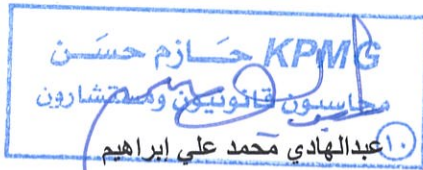 KPMG حازم حسن
محاسبون قانونيون ومستشارون
١٠
عبدالهادي محمد علي ابراهيم